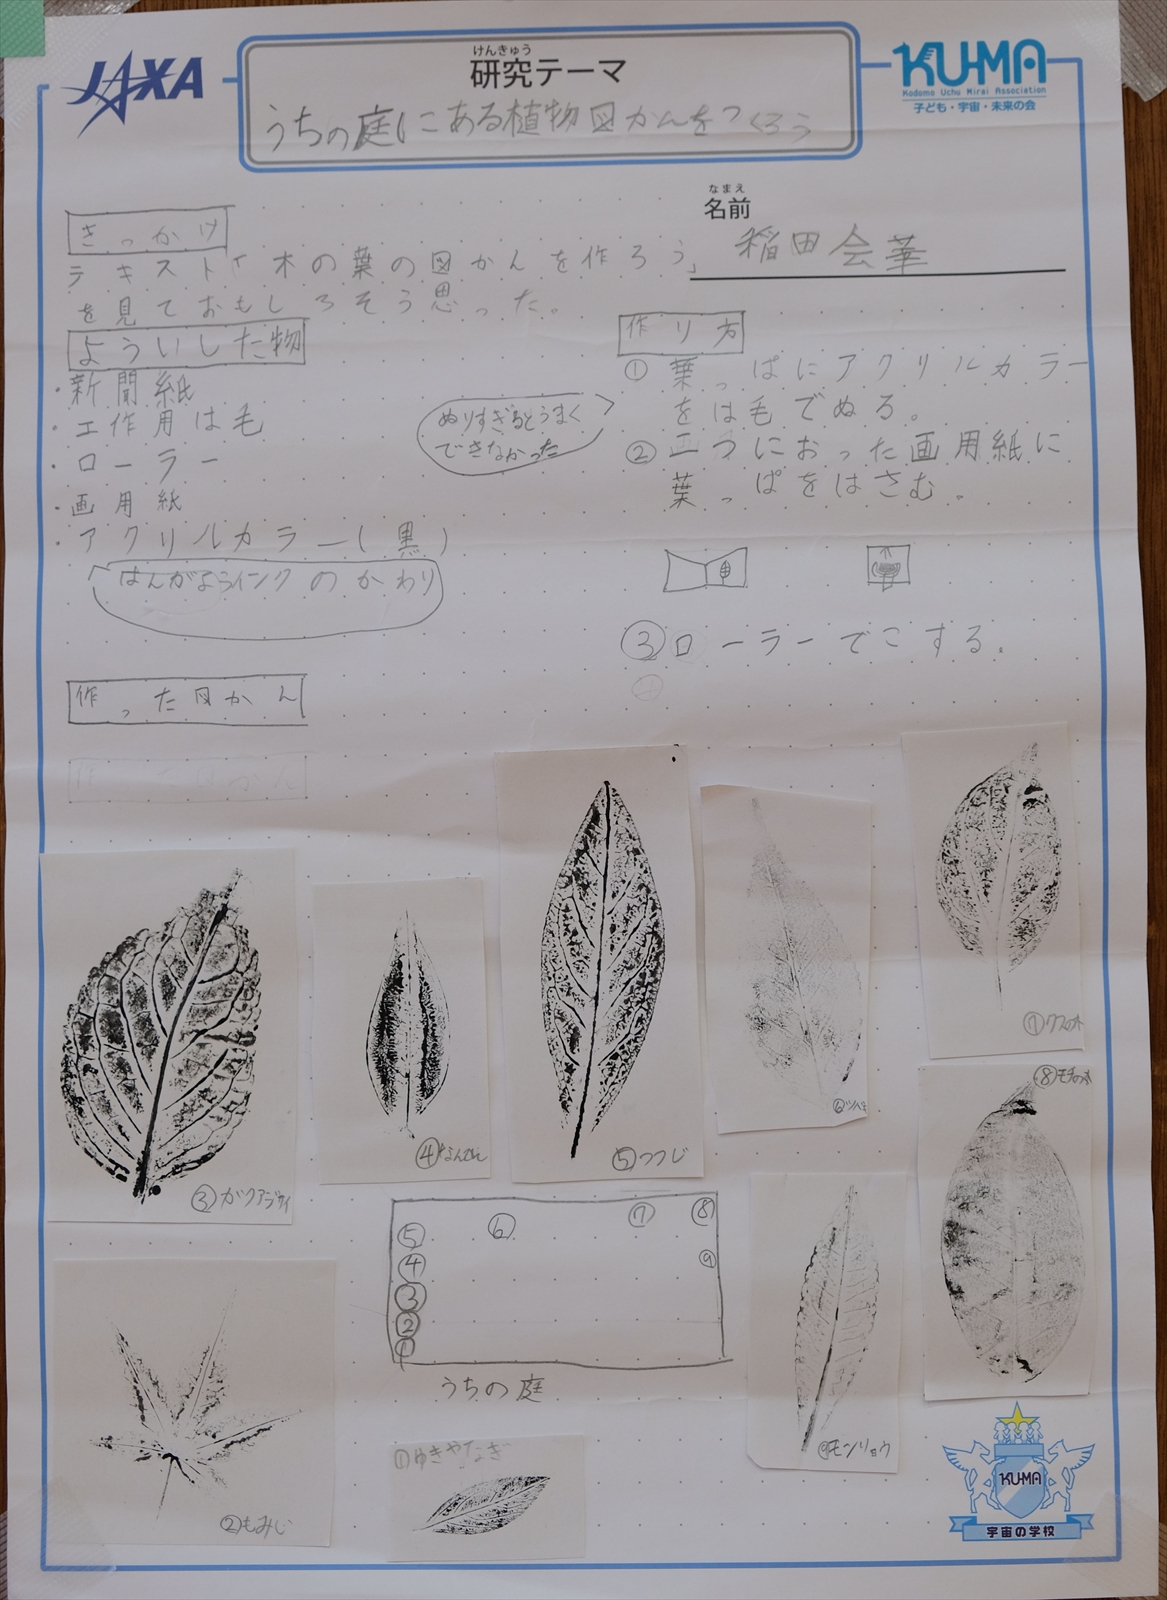 JAXA
けんきゅう
研究テーマ
うちの庭にある植物図かんをつくろう
KU-MA
Kodomo Uchu Mirai Association
子ども・宇宙・未来の会
なまえ
名前
稲田会華
きっかけ
テキスト「木の葉の図かんを作ろう」
を見ておもしろそう思った。
よういした物
・新聞紙
・工作用は毛
・ローラー
・画用紙
・アクリルカラー(黒)
はんがようインクのかわり
作り方
① 葉っぱにアクリルカラー
をは毛でぬる。
ぬりすぎるとうまく
できなかった
② 二つにおった画用紙に
葉っぱをはさむ。
③ ローラーでこする。
作った図かん
③ガクアジサイ
④なんてん
⑤つつじ
⑥ツバキ
⑦クスの木
⑧モチの木
⑤ ⑥ ⑦ ⑧
④ ⑨
③
②
①
うちの庭
②もみじ
①ゆきやなぎ
⑨モンリョウ
KU-MA
宇宙の学校